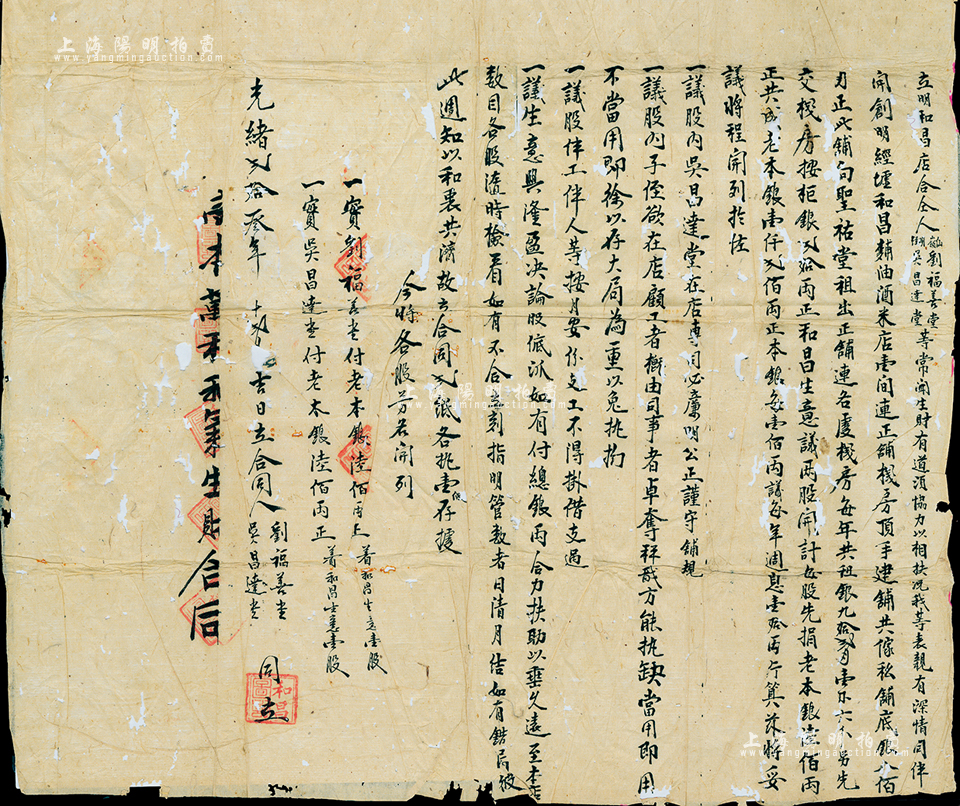 立明和昌店合合人劉福善堂吳昌達堂等常聞生財有道須協力以相扶況我等表親有深情同伴
開創明經墟和昌麵油酒米店壹間連正鋪棧房頂手建鋪共傢私鋪底銀八佰
刃正此鋪向聖祐堂祖出正鋪連各廈棧房每年共祖銀九拾
交棧房按柜銀弍拾丙正和昌生意議丙股開計每股先捐老本銀陸佰丙
正共成老本銀壹仟弍佰丙正本銀每壹佰丙議每年週息壹拾丙行算茲將妥
議將程開列於左
一議股內吳昌達堂在店專司必廉明公正謹守鋪規
一議股內子侄欲在店顧工者概由司事者卓奪秤戥方能执缺當用即用
不當用即除以存大局為重以免执拘
一議股伴工伴人等按月安份支工不得掛借支過
一議生意興隆盈決論股低派如有付總銀丙合力扶助以垂久遠至本店
數目各股隨時檢看如有不合立刻指明管數者日清月结如有錯局被
此週知以和衷共濟故立合同弍紙各执壹存據
今將各股芳名開列
一實劉福善堂付老本銀陸佰丙正 着和昌生意壹股
一實吳昌達堂付老本銀陸佰丙正 着和昌生意壹股
光緒弍拾叁年 吉日立合同人 劉福善堂 吳昌達堂 同立
本萬利 生財合同
和昌
上海陽明拍賣
www.yangmingauction.com